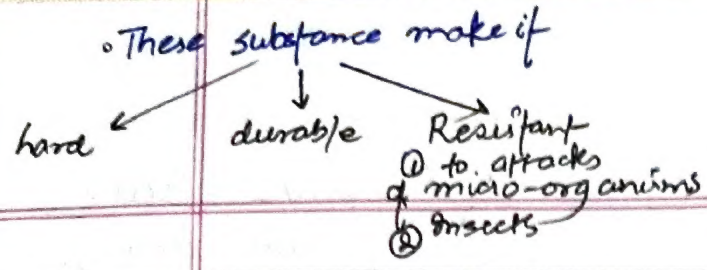 • These substance make it
hard durable Resistant
① to attacks
of micro-organisms
② Insects